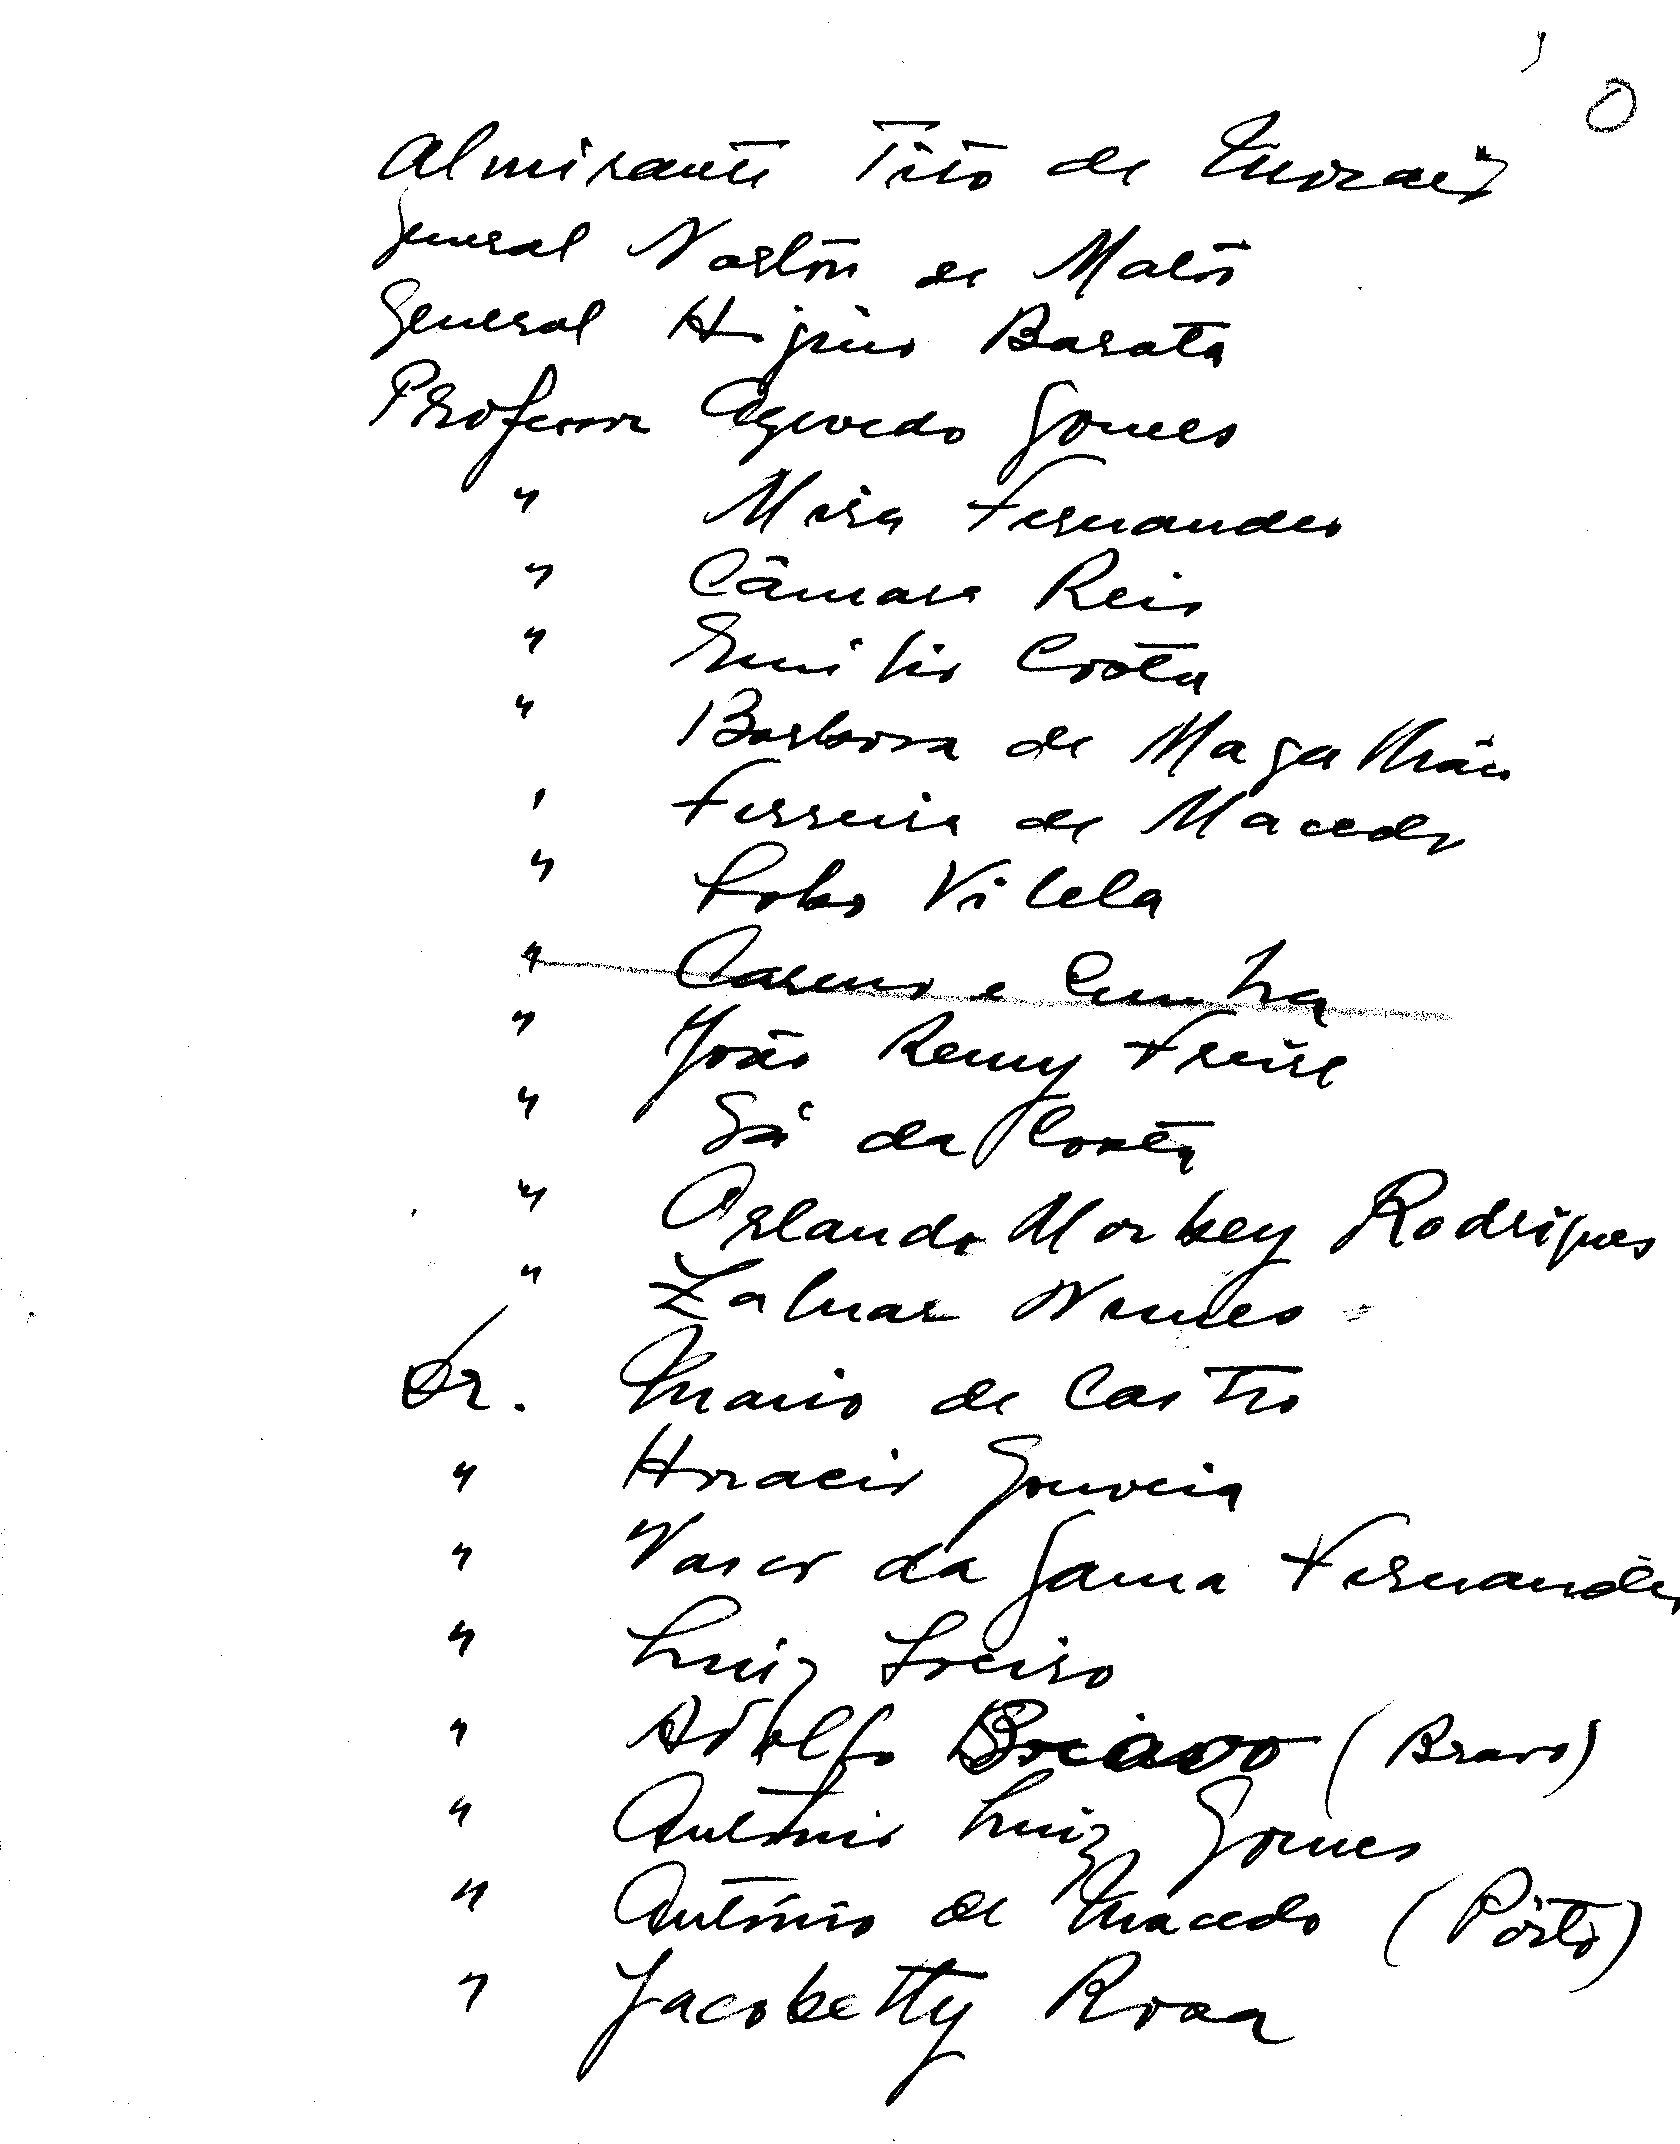 Almirante Tito de Moraes
General Norton de Matos
General Higino Barata
Professor Azevedo Gomes
" Mira Fernandes
" Câmara Reis
" Emilio Costa
" Barbosa de Magalhães
" Ferreira de Macedo
" Lobo Vilela
" Casemo e Cunha
" João Remy Freire
" Sá da Costa
" Orlando Morbey Rodrigues
" Zaluar Nunes
Dr. Mario de Castro
" Horacio Gouveia
" Vasco da Gama Fernandes
" Luiz Loeiro
" Adolfo (Bravo)
" António Luiz Gomes
" António de Macedo (Pôrto)
" Jacobetty Rosa